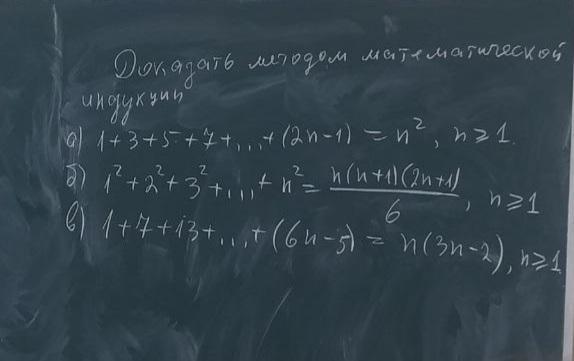 Доказать методом математической
индукции
а) 1+3+5+7+...+(2n-1) = n², n≥1.
б) 1²+2²+3²+...+n² = n(n+1)(2n+1)/6, n≥1
в) 1+7+13+...+(6n-5) = n(3n-2), n≥1